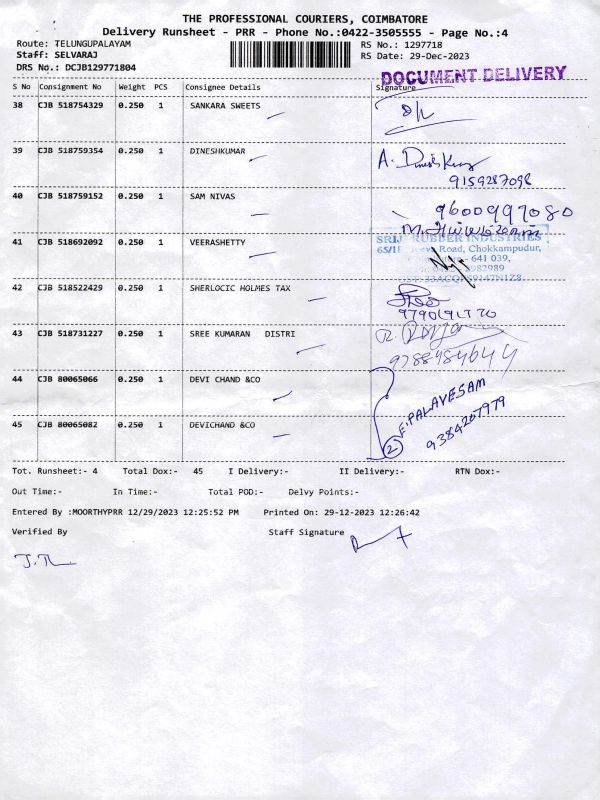 THE PROFESSIONAL COURIERS, COIMBATORE
Delivery Runsheet - PRR - Phone No.:0422-3505555 - Page No.:4
Route: TELUNGUPALAYAM RS No.: 1297718
Staff: SELVARAJ RS Date: 29-Dec-2023
DRS No.: DCJB129771804
DOCUMENT DELIVERY
S No Consignment No Weight PCS Consignee Details Signature
38 CJB 518754329 0.250 1 SANKARA SWEETS
39 CJB 518759354 0.250 1 DINESHKUMAR A. DineshKumar
9159287098
40 CJB 518759152 0.250 1 SAM NIVAS
9600997080
41 CJB 518692092 0.250 1 VEERASHETTY SRI RUBBER INDUSTRIES
Road, Chokkampudur,
641 039.
42 CJB 518522429 0.250 1 SHERLOCIC HOLMES TAX
43 CJB 518731227 0.250 1 SREE KUMARAN DISTRI
44 CJB 80065066 0.250 1 DEVI CHAND &CO
E.PALAVESAM
45 CJB 80065082 0.250 1 DEVICHAND &CO 9384207979
2
Tot. Runsheet:- 4 Total Dox:- 45 I Delivery:- II Delivery:- RTN Dox:-
Out Time:- In Time:- Total POD:- Delvy Points:-
Entered By :MOORTHYPRR 12/29/2023 12:25:52 PM Printed On: 29-12-2023 12:26:42
Verified By Staff Signature